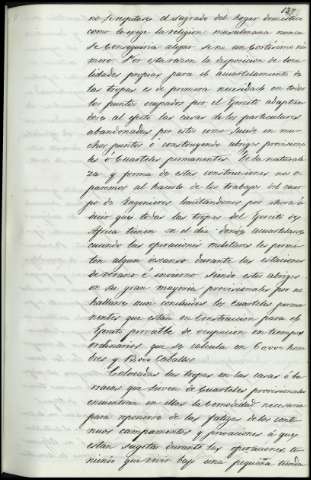 137
no se respetase el sagrado del hogar doméstico
como lo exije la religion musulmana nunca
se conseguiria alojar si no un cortisimo nú-
mero. Por esta razon la disposicion de loca-
lidades propias para el acuartelamiento de
las tropas es de primera necesidad en todos
los puntos ocupados por el Ejercito adaptan-
dose al efecto las casas de los particulares
abandonadas por estos como sucede en mu-
chos puntos ó construyendo abrigos provisiona-
les ó Cuarteles permanentes. De la naturale-
za y forma de estas construcciones nos o-
cuparemos al hacerlo de los trabajos del cuer-
po de Ingenieros limitandonos por ahora á
decir que todas las tropas del Ejercito de
Africa tienen en el dia donde acuartelarse
cuando las operaciones militares les permi-
tan algun descanso durante las estaciones
de verano é invierno siendo estos abrigos
en su gran mayoria provisionales por no
hallarse aun concluidos los cuarteles perma-
nentes que estan en construccion para el
Ejercito probable de ocupacion en tiempos
ordinarios que se calcula en hom-
bres y Caballos.
Colocadas las tropas en las casas ó ba-
rracas que sirven de Cuarteles provisionales
encuentran en ellas la comodidad necesaria
para reponerse de las fatigas de los conti-
nuos campamentos y privaciones á que
estan sugetas durante las operaciones te-
niendo que vivir bajo una pequeña tienda